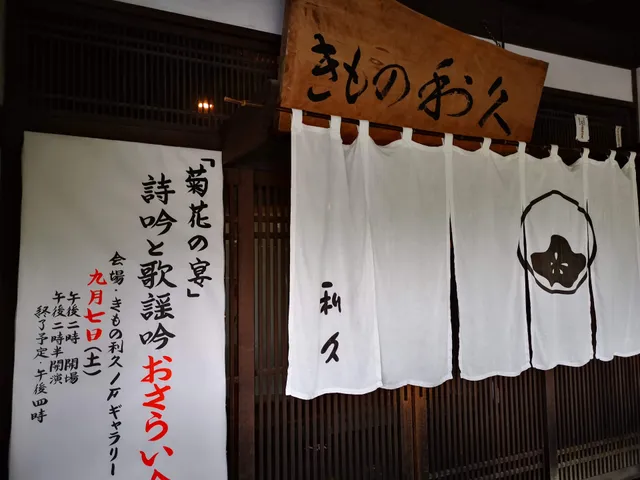 きもの利久
利久
「菊花の宴」
詩吟と歌謡吟おさらい
会場・きもの利久ノ石ギャラリー
九月七日(土)
午後二時 開場
午後二時半開演
終了予定・午後四時